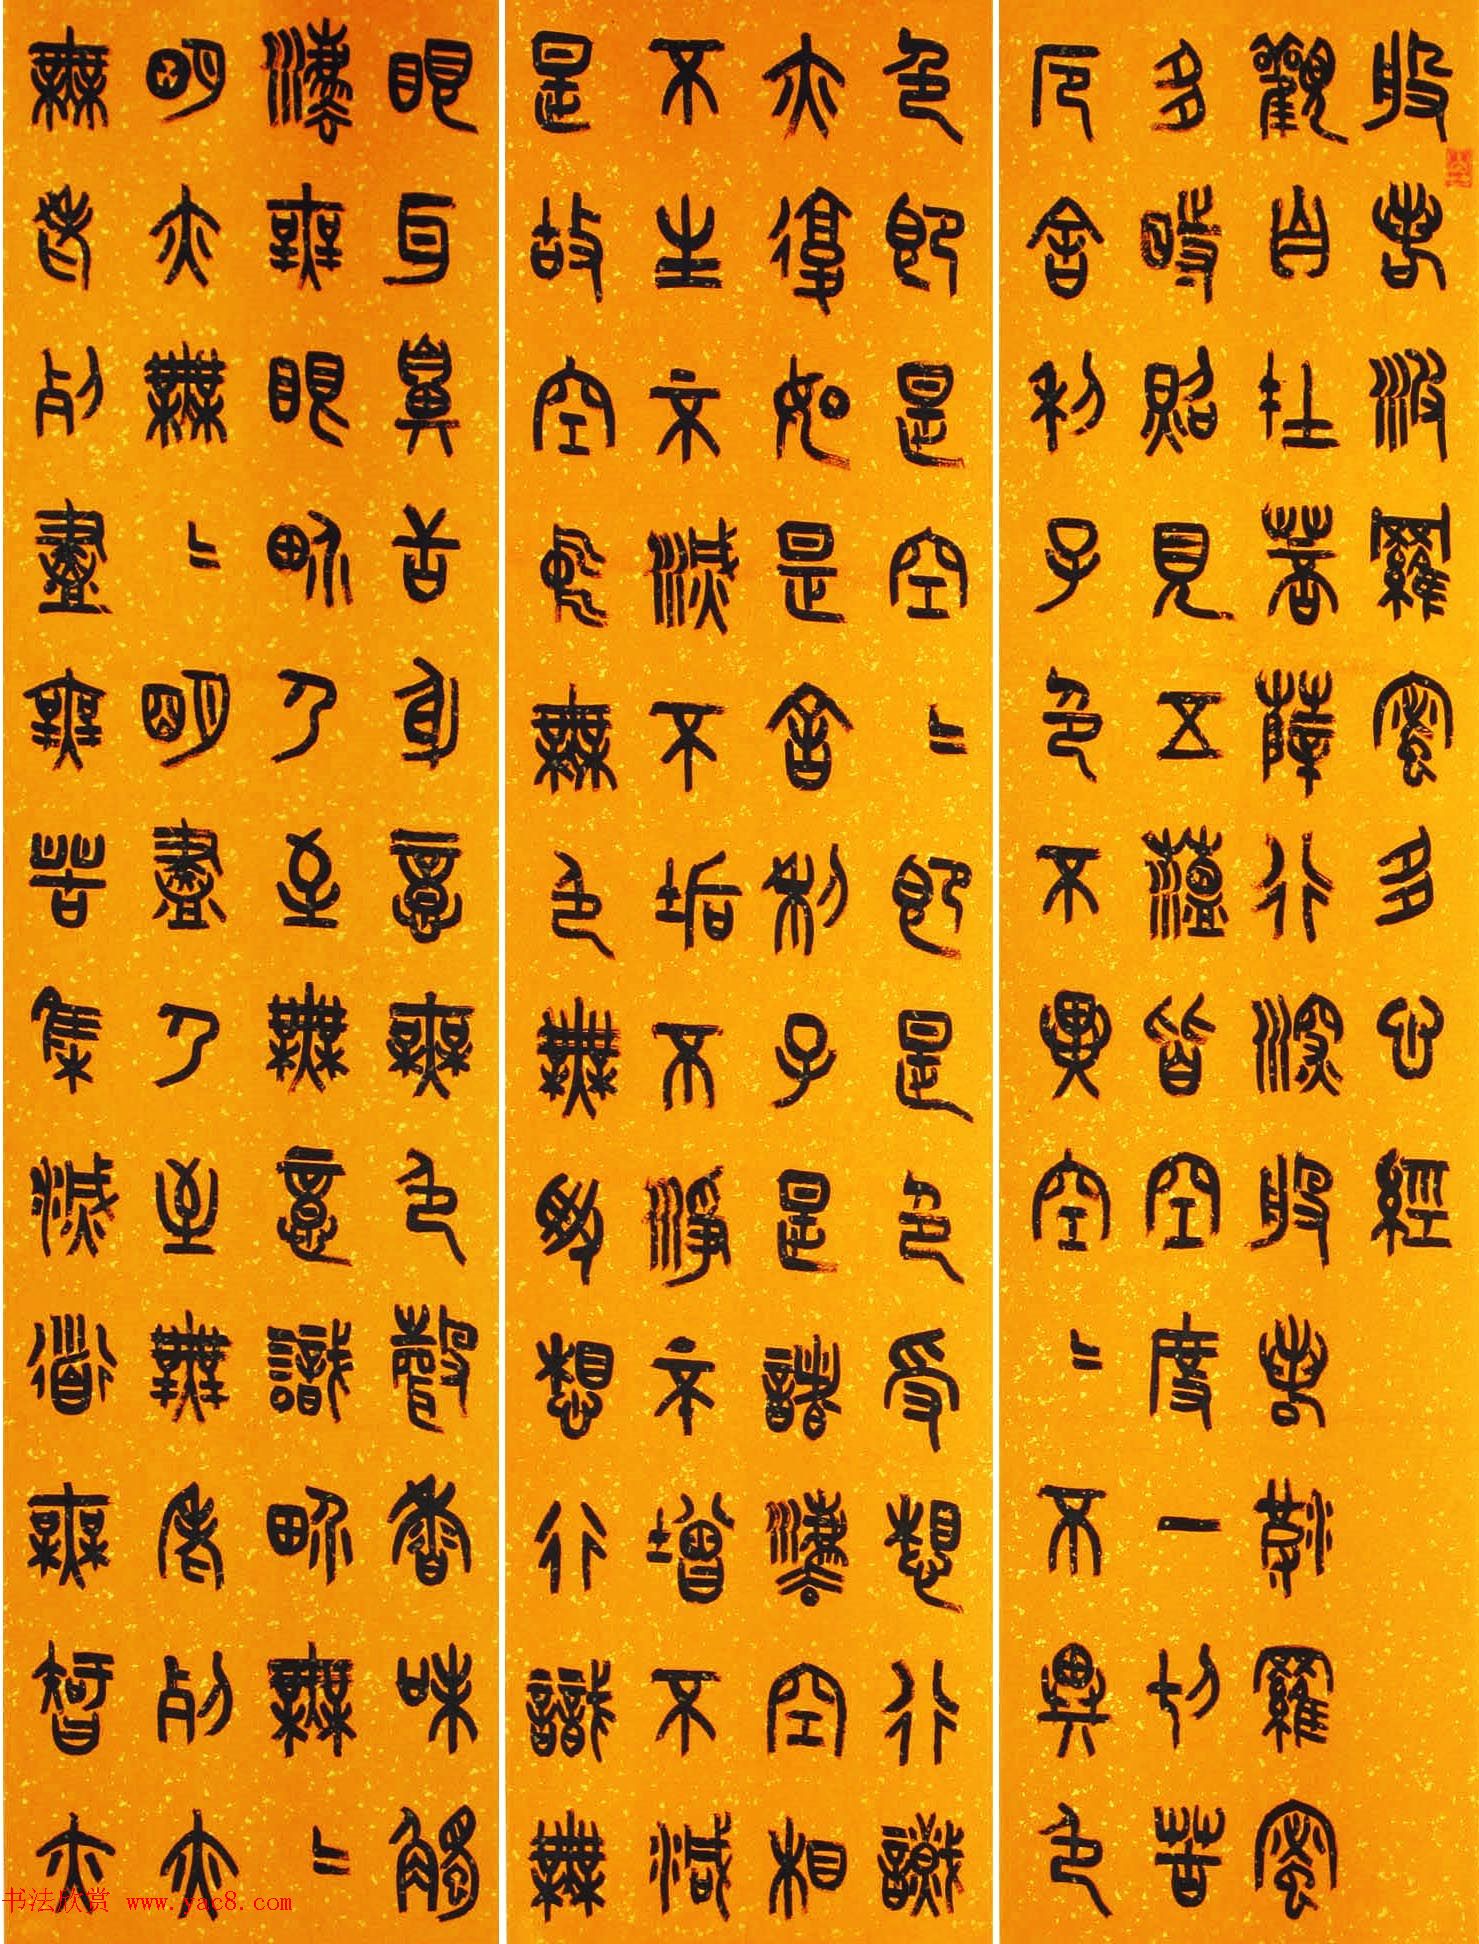 般若波羅蜜多心經
觀自在菩薩行深般若波羅蜜
多時照見五蘊皆空度一切苦
厄舍利子色不異空〻不異色
色即是空〻即是色受想行識
亦復如是舍利子是諸法空相
不生不滅不垢不淨不增不減
是故空中無色無受想行識無
眼耳鼻舌身意無色聲香味觸
法無眼界乃至無意識界無〻
明亦無〻明盡乃至無老死亦
無老死盡無苦集滅道無智亦
书法欣赏 www.yac8.com